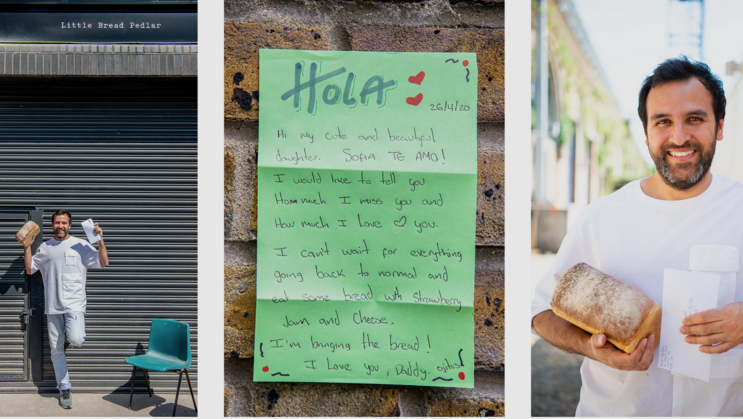 Little Bread Pedlar
HOLA
26/4/20
Hi my cute and beautiful
daughter. SOFIA TE AMO!
I would like to tell you
How much I miss you and
How much I love you.
I can't wait for everything
going back to normal and
eat some bread with strawberry
Jam and Cheese.
I'm bringing the bread!
I Love you, Daddy.